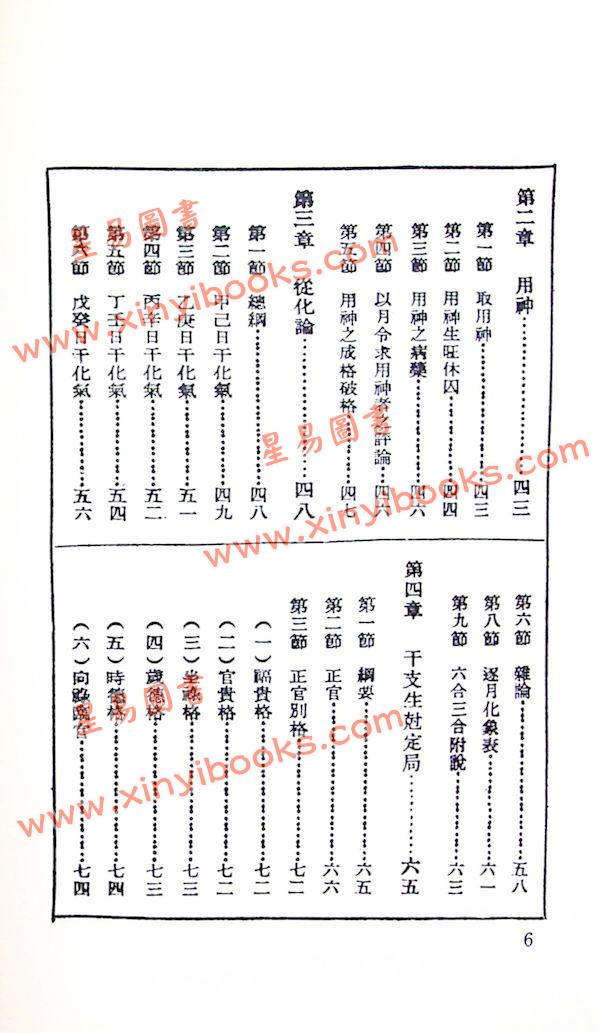 第二章　用神………四三
第一節　取用神………四三
第二節　用神生旺休囚………四四
第三節　用神之病藥………四六
第四節　以月令求用神者之評論………四六
第五節　用神之成格破格………四七
第三章　從化論………四八
第一節　總綱………四八
第二節　甲己日干化氣………四九
第三節　乙庚日干化氣………五一
第四節　丙辛日干化氣………五二
第五節　丁壬日干化氣………五四
第六節　戊癸日干化氣………五六
第六節　雜論………五八
第八節　逐月化象表………六一
第九節　六合三合附說………六三
第四章　干支生尅定局………六五
第一節　綱要………六五
第二節　正官………六六
第三節　正官別格………七二
（一）福貴格………七二
（二）官貴格………七二
（三）坐祿格………七三
（四）歲德格………七三
（五）時德格………七四
（六）向祿臨官………七四
6
星易圖書
www.xinyibooks.com
星易圖書
www.xinyibooks.com
星易圖書
www.xinyibooks.com